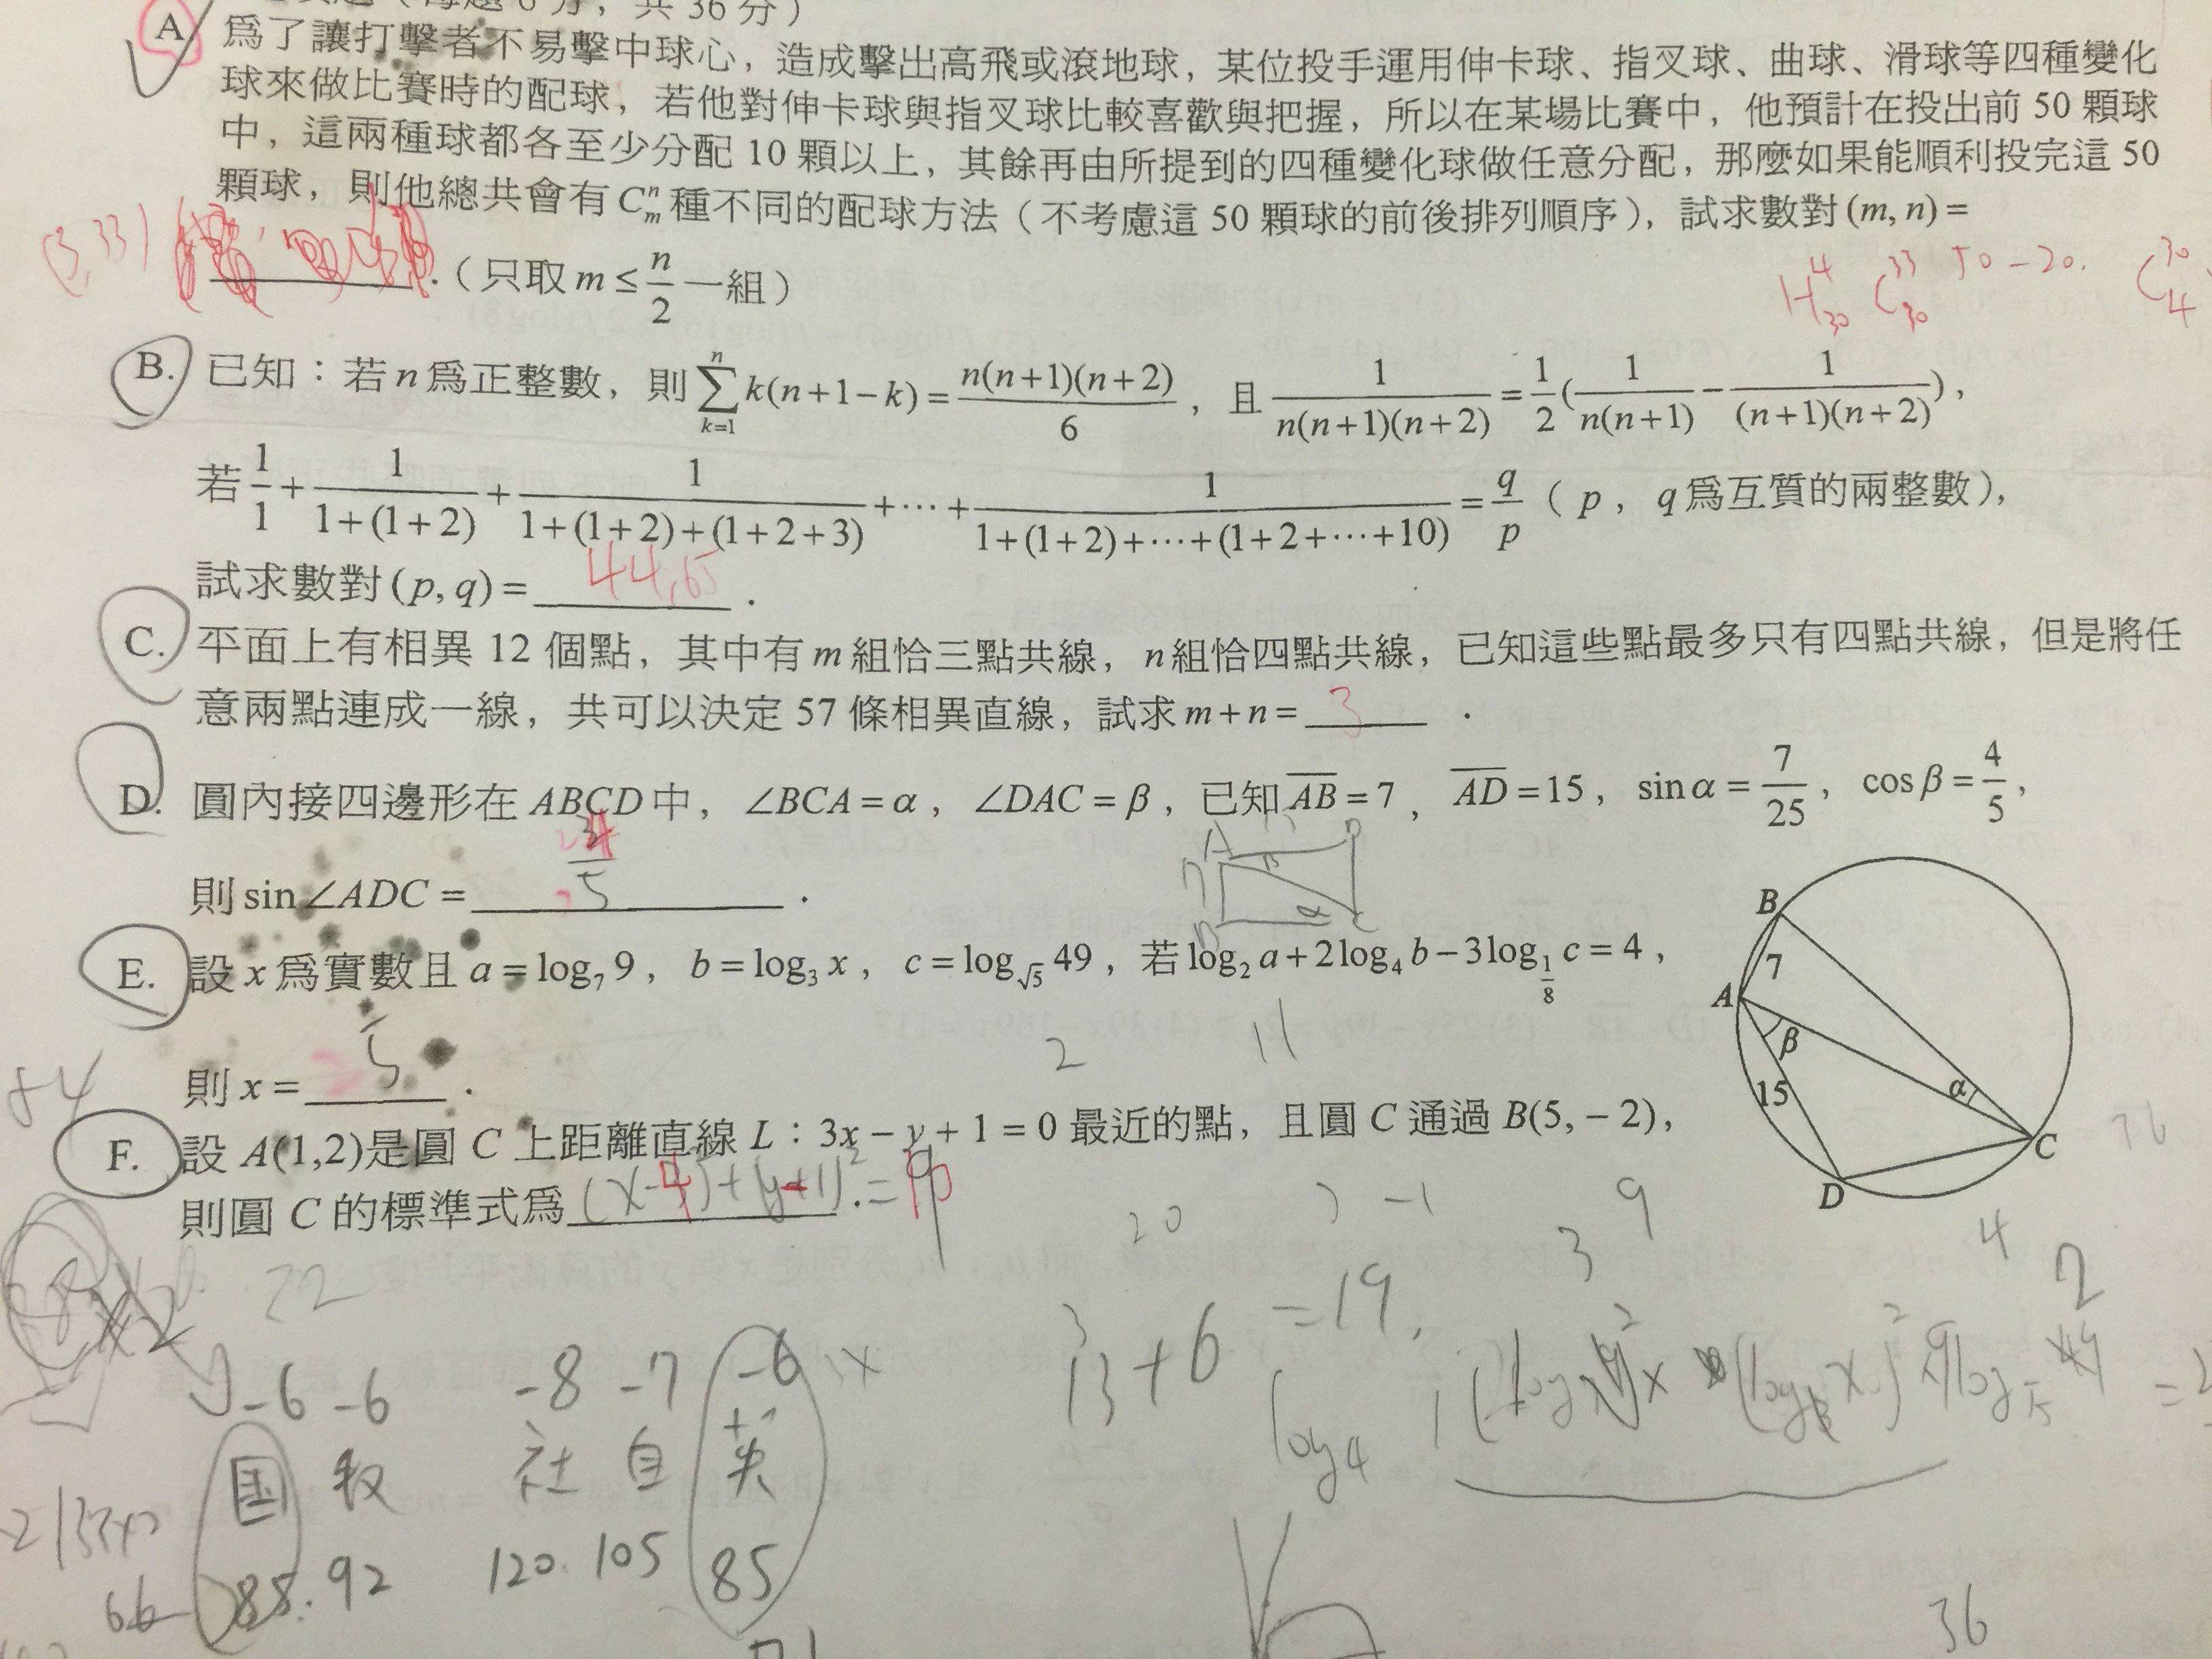 共 36 分)
A. 爲了讓打擊者不易擊中球心，造成擊出高飛或滾地球，某位投手運用伸卡球、指叉球、曲球、滑球等四種變化
球來做比賽時的配球，若他對伸卡球與指叉球比較喜歡與把握，所以在某場比賽中，他預計在投出前 50 顆球
中，這兩種球都各至少分配 10 顆以上，其餘再由所提到的四種變化球做任意分配，那麼如果能順利投完這 50
顆球，則他總共會有 C^n_m 種不同的配球方法（不考慮這 50 顆球的前後排列順序），試求數對 (m, n) =
(3,33) ______．（只取 m ≤ n/2 一組）
H^4_30 C^33_30 50-20. C^30_4
B. 已知：若 n 爲正整數，則 ∑_{k=1}^{n} k(n+1−k) = n(n+1)(n+2)/6，且 1/(n(n+1)(n+2)) = 1/2(1/(n(n+1)) − 1/((n+1)(n+2)))，
若 1/1 + 1/(1+(1+2)) + 1/(1+(1+2)+(1+2+3)) + ⋯ + 1/(1+(1+2)+⋯+(1+2+⋯+10)) = q/p（p，q 爲互質的兩整數），
試求數對 (p, q) = 44,65．
C. 平面上有相異 12 個點，其中有 m 組恰三點共線，n 組恰四點共線，已知這些點最多只有四點共線，但是將任
意兩點連成一線，共可以決定 57 條相異直線，試求 m+n = 3．
D. 圓內接四邊形在 ABCD 中，∠BCA = α，∠DAC = β，已知 AB = 7，AD = 15，sin α = 7/25，cos β = 4/5，
則 sin∠ADC = ______．
E. 設 x 爲實數且 a = log_7 9，b = log_3 x，c = log_√5 49，若 log_2 a + 2log_4 b − 3log_{1/8} c = 4，
則 x = 5．
F. 設 A(1,2)是圓 C 上距離直線 L：3x − y + 1 = 0 最近的點，且圓 C 通過 B(5, − 2)，
則圓 C 的標準式爲 (x-4)²+(y-1)²=10．
B
7
A
β
15
α
C
D
2
11
54
76
20
-1
3
9
4
2
22
13+6
=19.
log4
-6 -6 -8 -7 -6
国 社 自 英
88. 92 120. 105 85
66
36